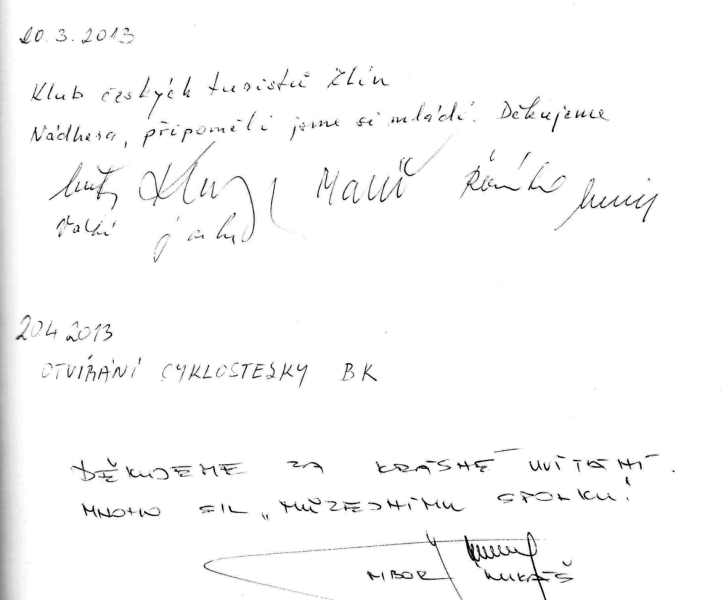 20.3.2013
Klub českých turistů Zlín
Nádhera, připoměli jsme si mládí. Děkujeme
20.4 2013
OTVÍRÁNÍ CYKLOSTEZKY BK
DĚKUJEME ZA KRÁSNÉ UVÍTÁNÍ.
MNOHO SIL „MUZEJNÍMU SPOLKU!
LUKÁŠ